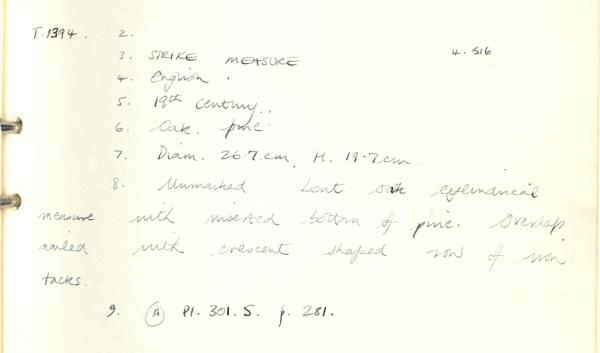 T.1394. 2.
3. STRIKE MEASURE 4.516
4. English.
5. 19th Century..
6. Oak. pine.
7. Diam. 26.7cm. H. 19.7cm.
8. Unmarked bent oak cylindrical
measure with inserted bottom of pine. Overlap
nailed with crescent shaped row of iron
tacks.
9. A Pl. 301. S. p. 281.